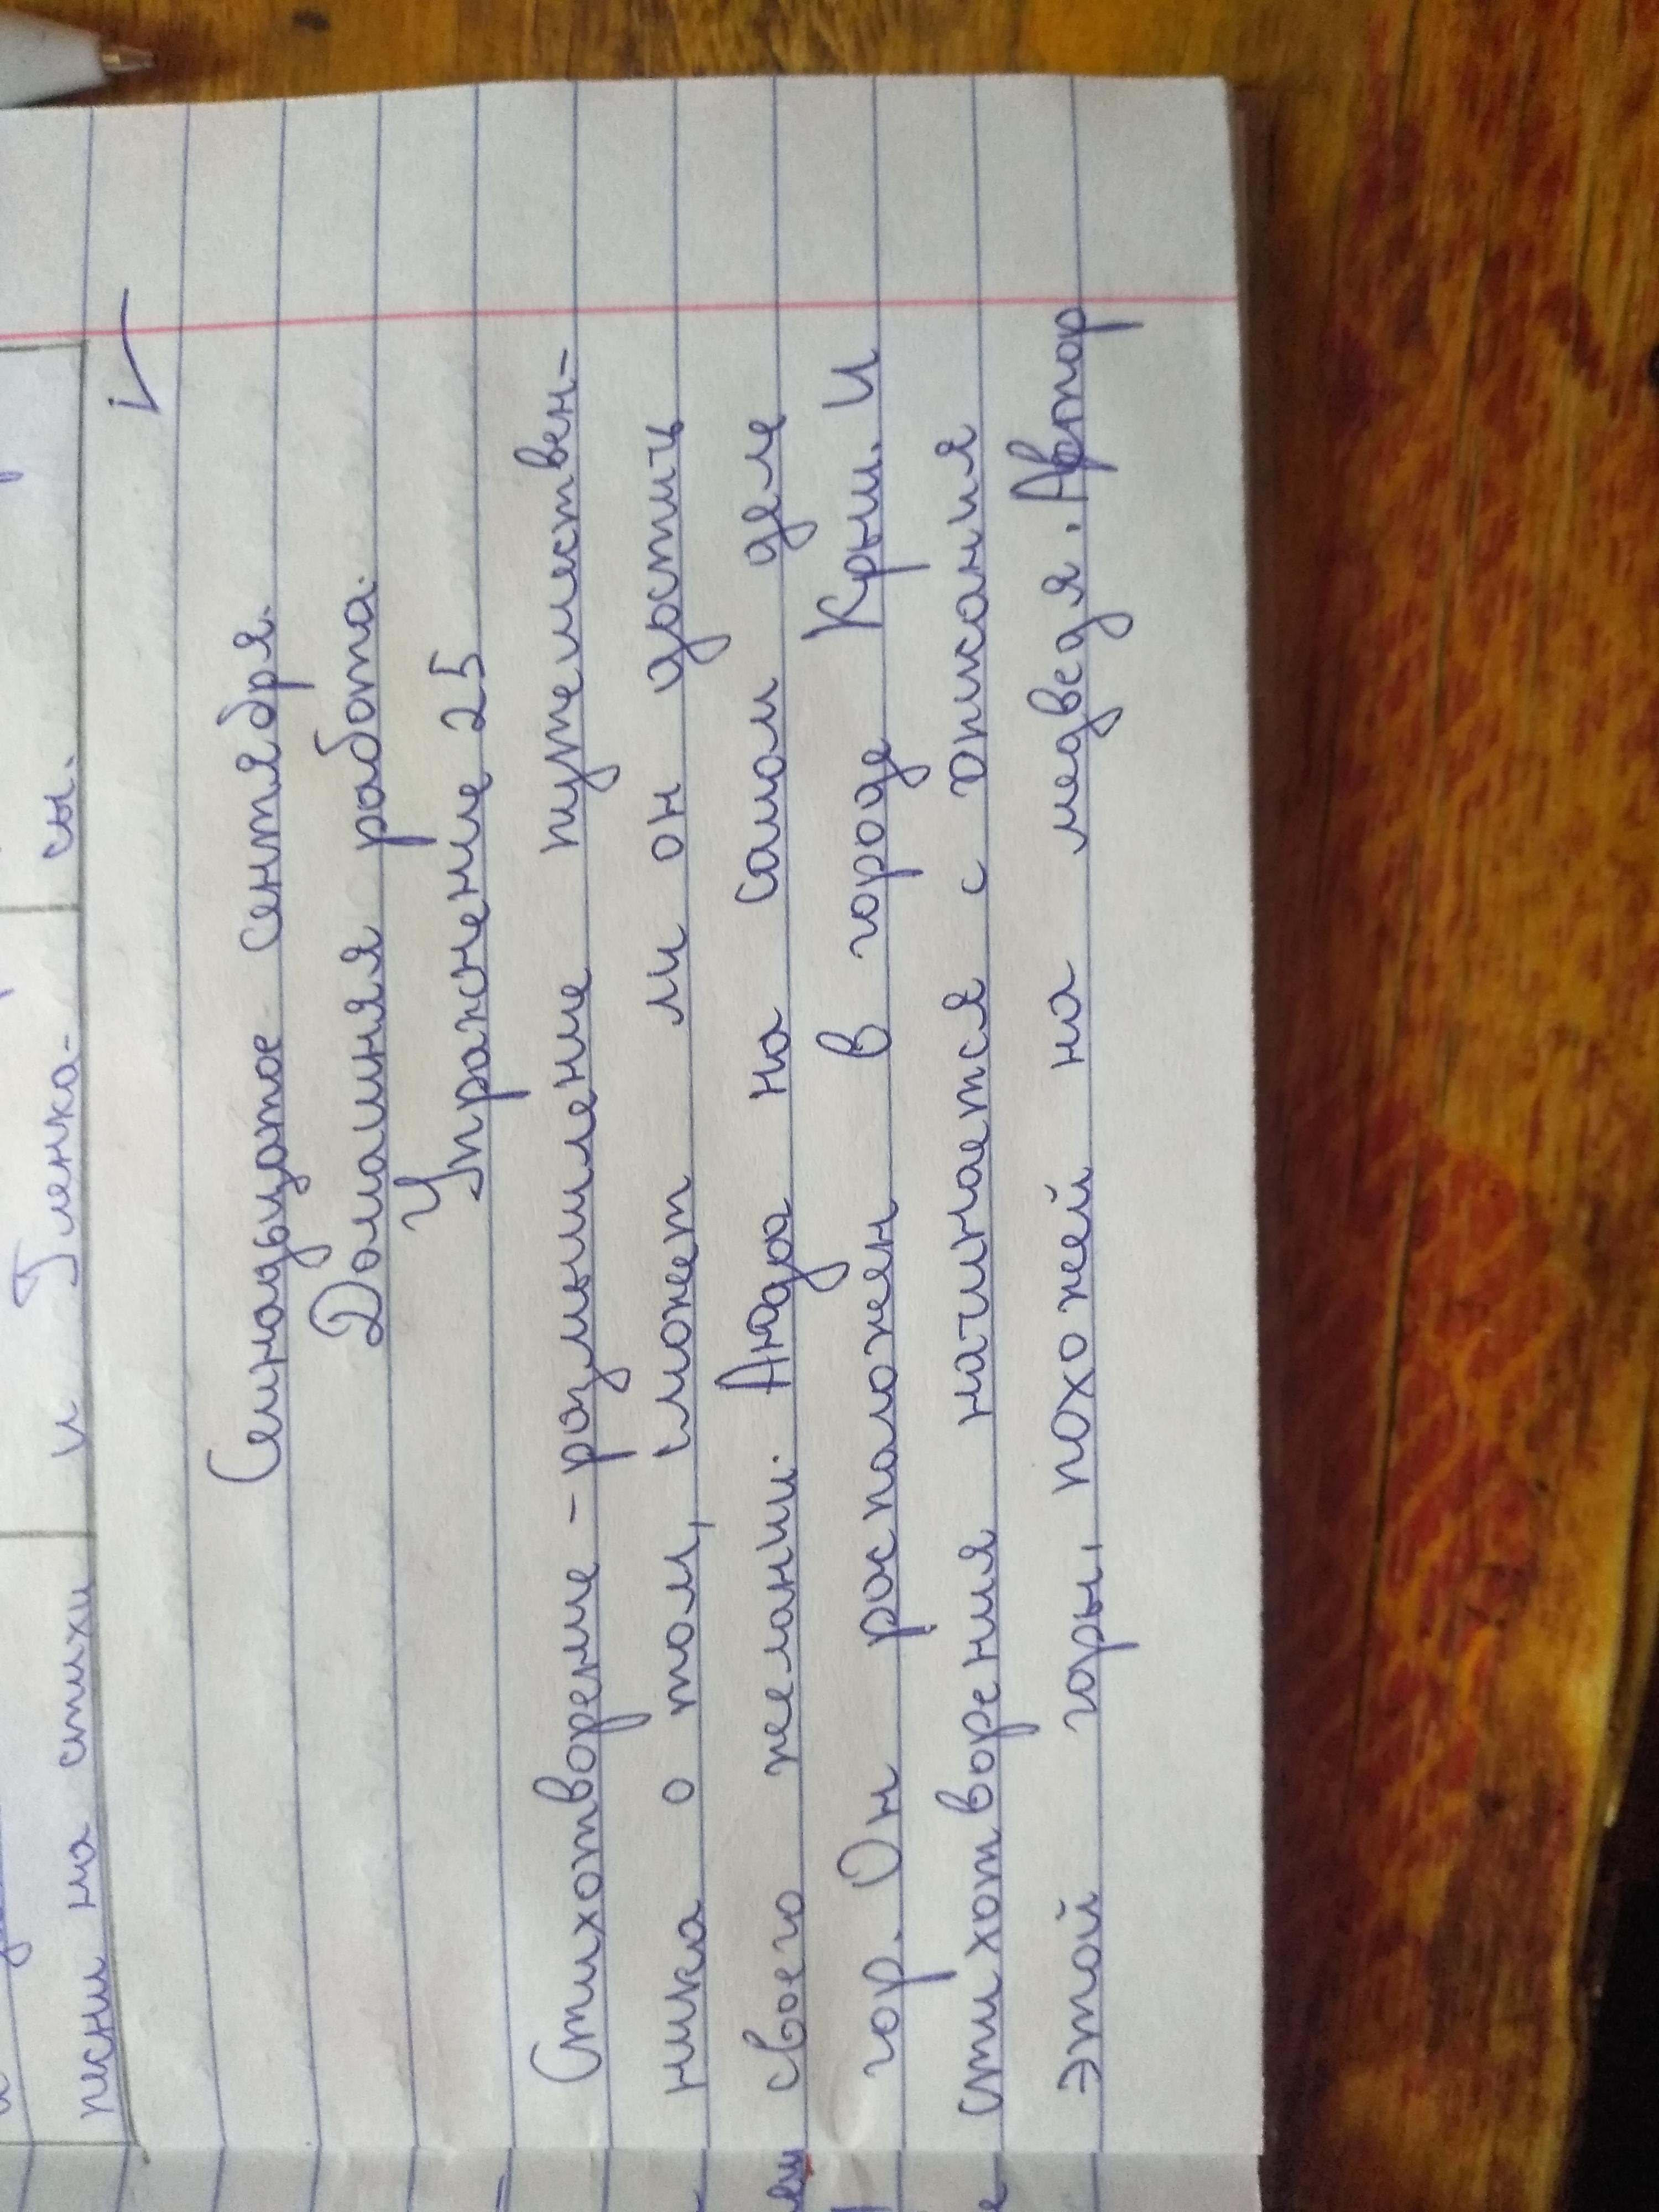 песни на стихи и Гленка- сы.
Семнадцатое сентября.
Домашняя работа.
Упражнение 25
Стихотворение - размышление путешествен-
ника о том, сможет ли он достичь
своего желании. Аюдаг на самом деле
гор. Он расположен в городе Крым. И
стихотворения начинается с описания
этой горы, похожей на медведя. Автор